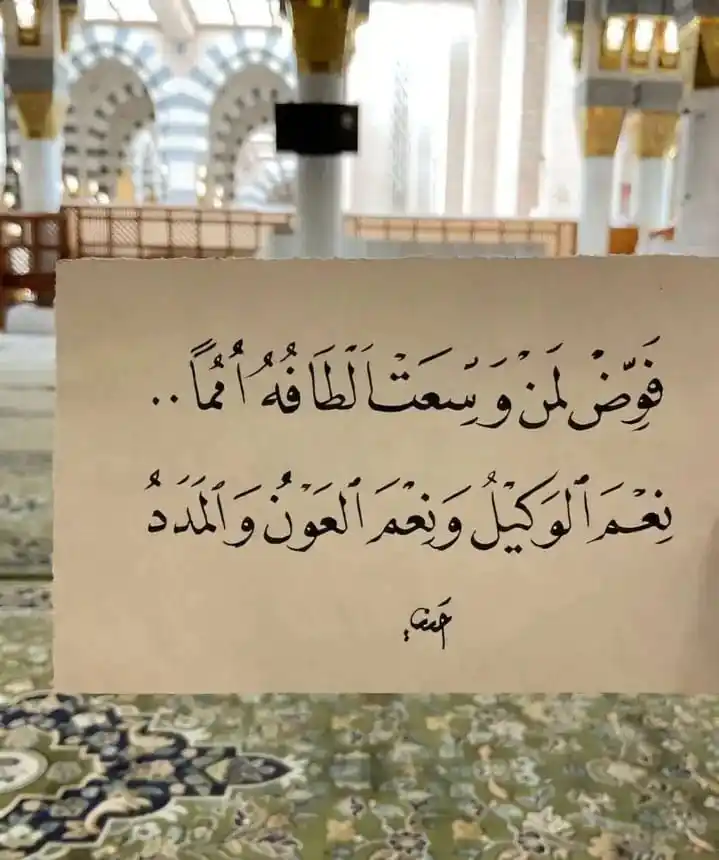 فَوِّضْ لِمَنْ وَسِعَتْ اَلْطَافُهُ اُمَمًا..
نِعْمَ ٱلْوَكِيْلُ وَنِعْمَ ٱلْعَوْنُ وَٱلْمَدَدُ